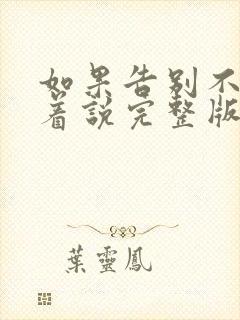 如果告别不
着説完整版
葉靈鳳